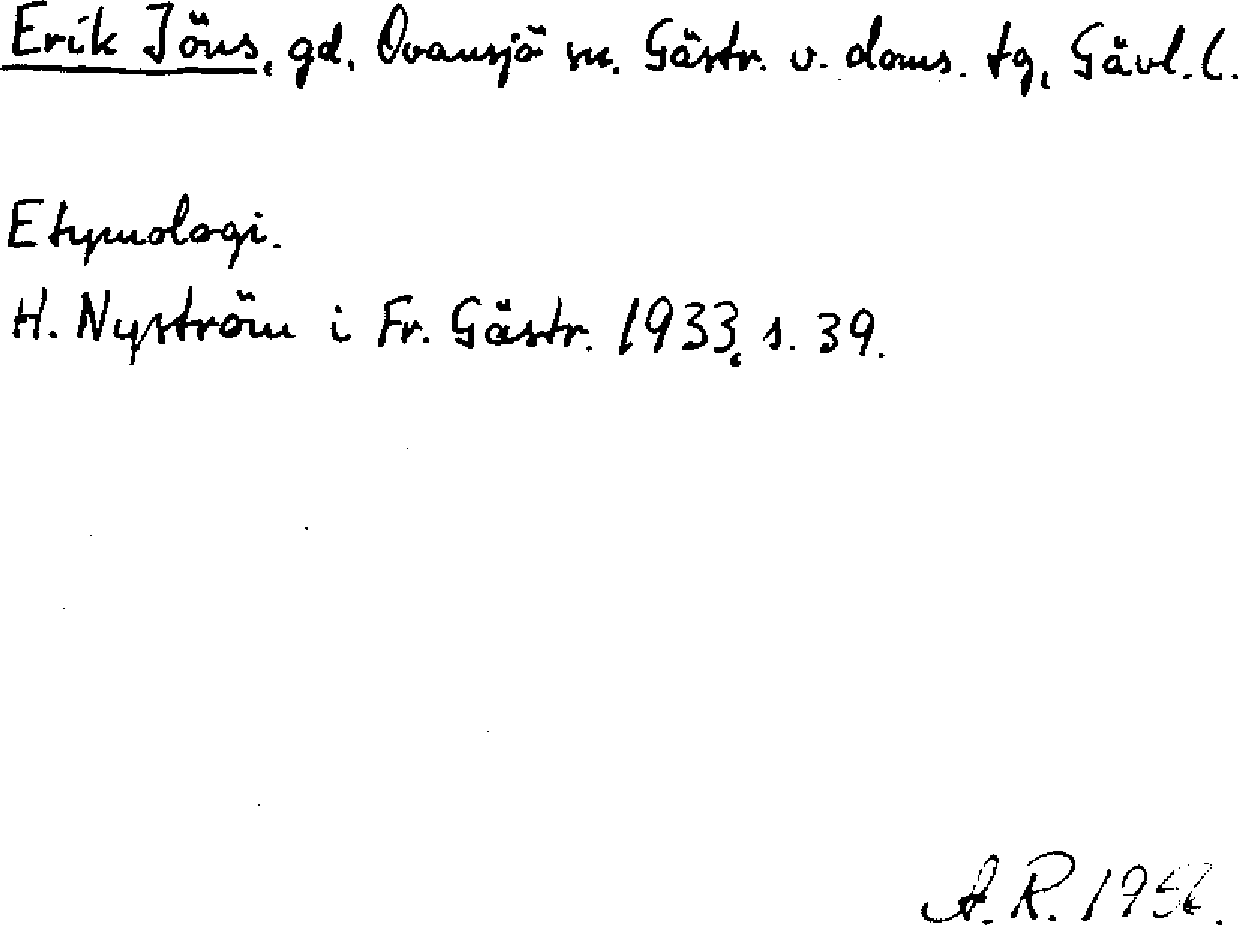 Erik Jöns, gd, Ovansjö sn, Gästr. v. doms. tg, Gävl. l.
Etymologi.
H. Nyström i Fr. Gästr. 1933, s. 39.
A. R. 1956.